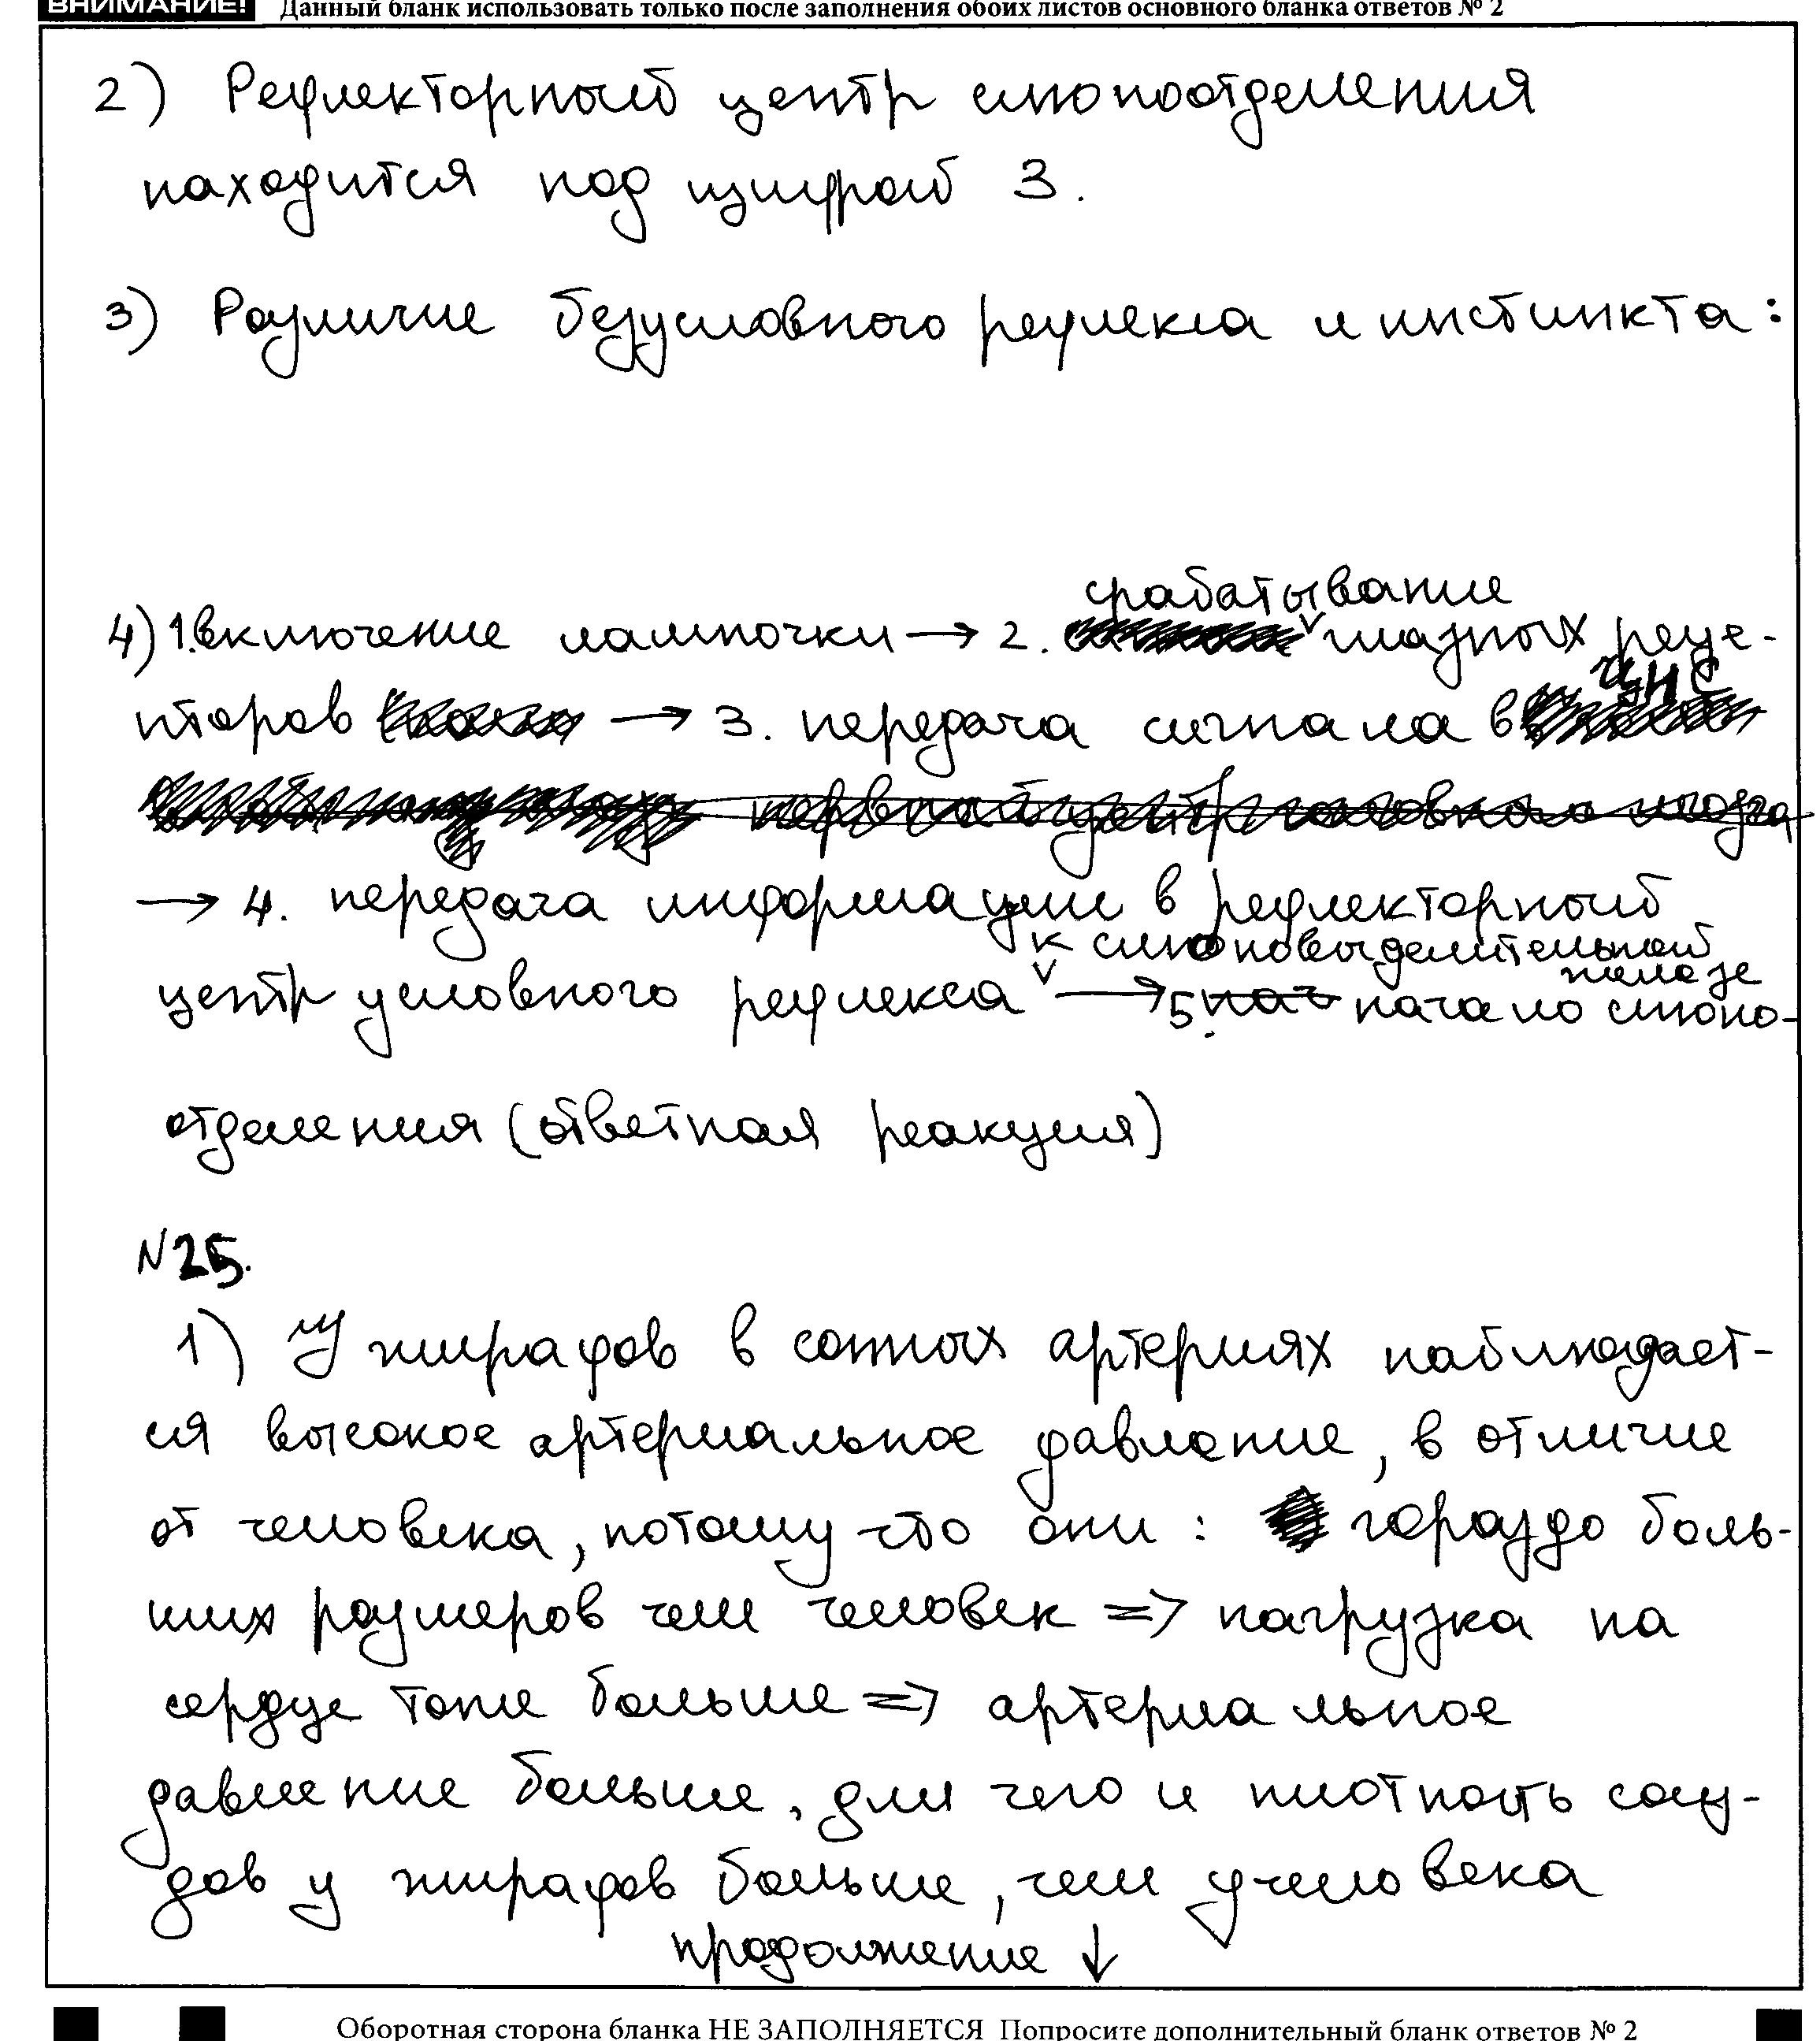 ВНИМАНИЕ! Данный бланк использовать только после заполнения обоих листов основного бланка ответов № 2
2) Рефлекторный центр слюноотделения
находится под цифрой 3.
3) Различие безусловного рефлекса и инстинкта:
4) 1. включение лампочки → 2. срабатывание глазных реце-
пторов → 3. передача сигнала в ЦНС
→ 4. передача информации в рефлекторный
центр условного рефлекса к слюновыделительной железе → 5. начало слюно-
отделения (ответная реакция)
№25.
1) У жирафов в сонных артериях наблюдает-
ся высокое артериальное давление, в отличие
от человека, потому что они: гораздо боль-
ших размеров чем человек => нагрузка на
сердце тоже больше => артериальное
давление больше, для чего и плотность сосу-
дов у жирафов больше, чем у человека
продолжение ↓
Оборотная сторона бланка НЕ ЗАПОЛНЯЕТСЯ Попросите дополнительный бланк ответов № 2